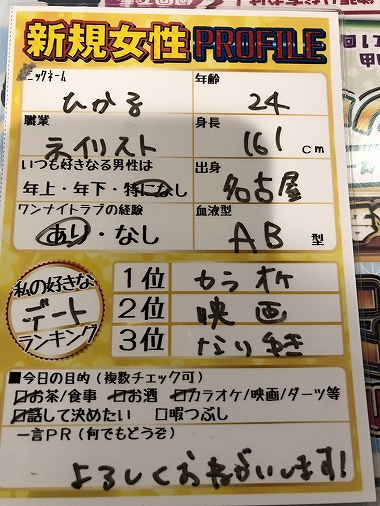 新規女性 PROFILE
ニックネーム
ひかる
年齢
24
職業
ネイリスト
身長
161 cm
いつも好きなる男性は
年上・年下・特になし
出身
名古屋
ワンナイトラブの経験
あり・なし
血液型
AB 型
私の好きな
デート
ランキング
1位 カラオケ
2位 映画
3位 なりゆき
■今日の目的(複数チェック可)
☑お茶/食事 ☑お酒 ☑カラオケ/映画/ダーツ等
☑話して決めたい □暇つぶし
一言PR(何でもどうぞ)
よろしくおねがいします!